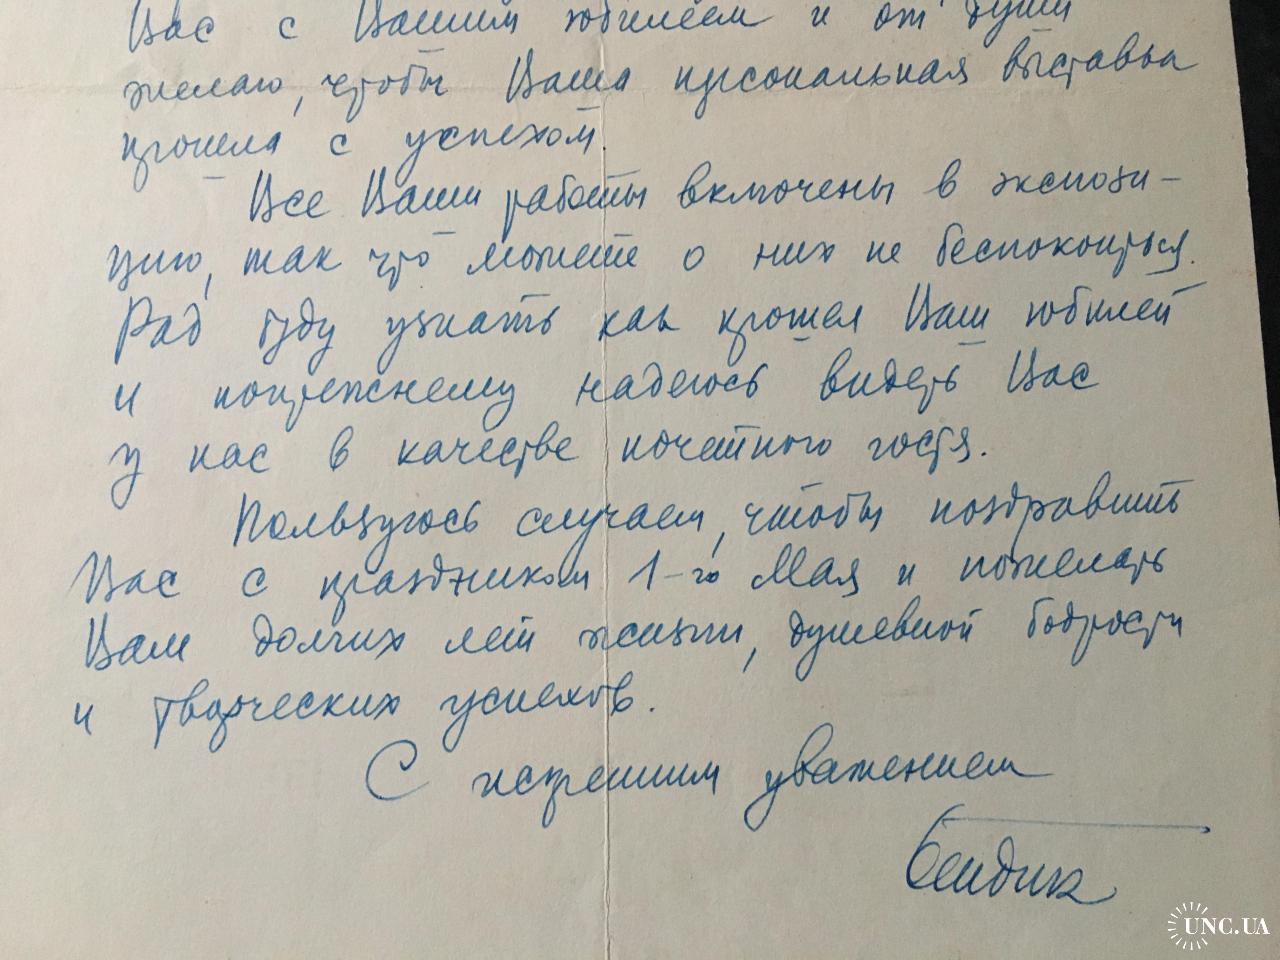 Вас с Вашим юбилеем и от души
желаю, чтобы Ваша персональная выставка
прошла с успехом.
Все Ваши работы включены в экспози-
цию, так что можете о них не беспокоиться.
Рад буду узнать как прошел Ваш юбилей
и попрежнему надеюсь видеть Вас
у нас в качестве почетного гостя.
Пользуюсь случаем, чтобы поздравить
Вас с праздником 1-го Мая и пожелать
Вам долгих лет жизни, душевной бодрости
и творческих успехов.
С искренним уважением
UNC.UA